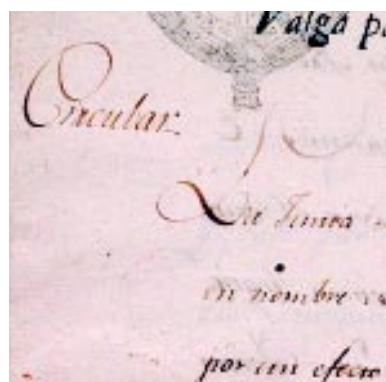 Valga p
Circular.
La Junta
en nombre
por un efecto